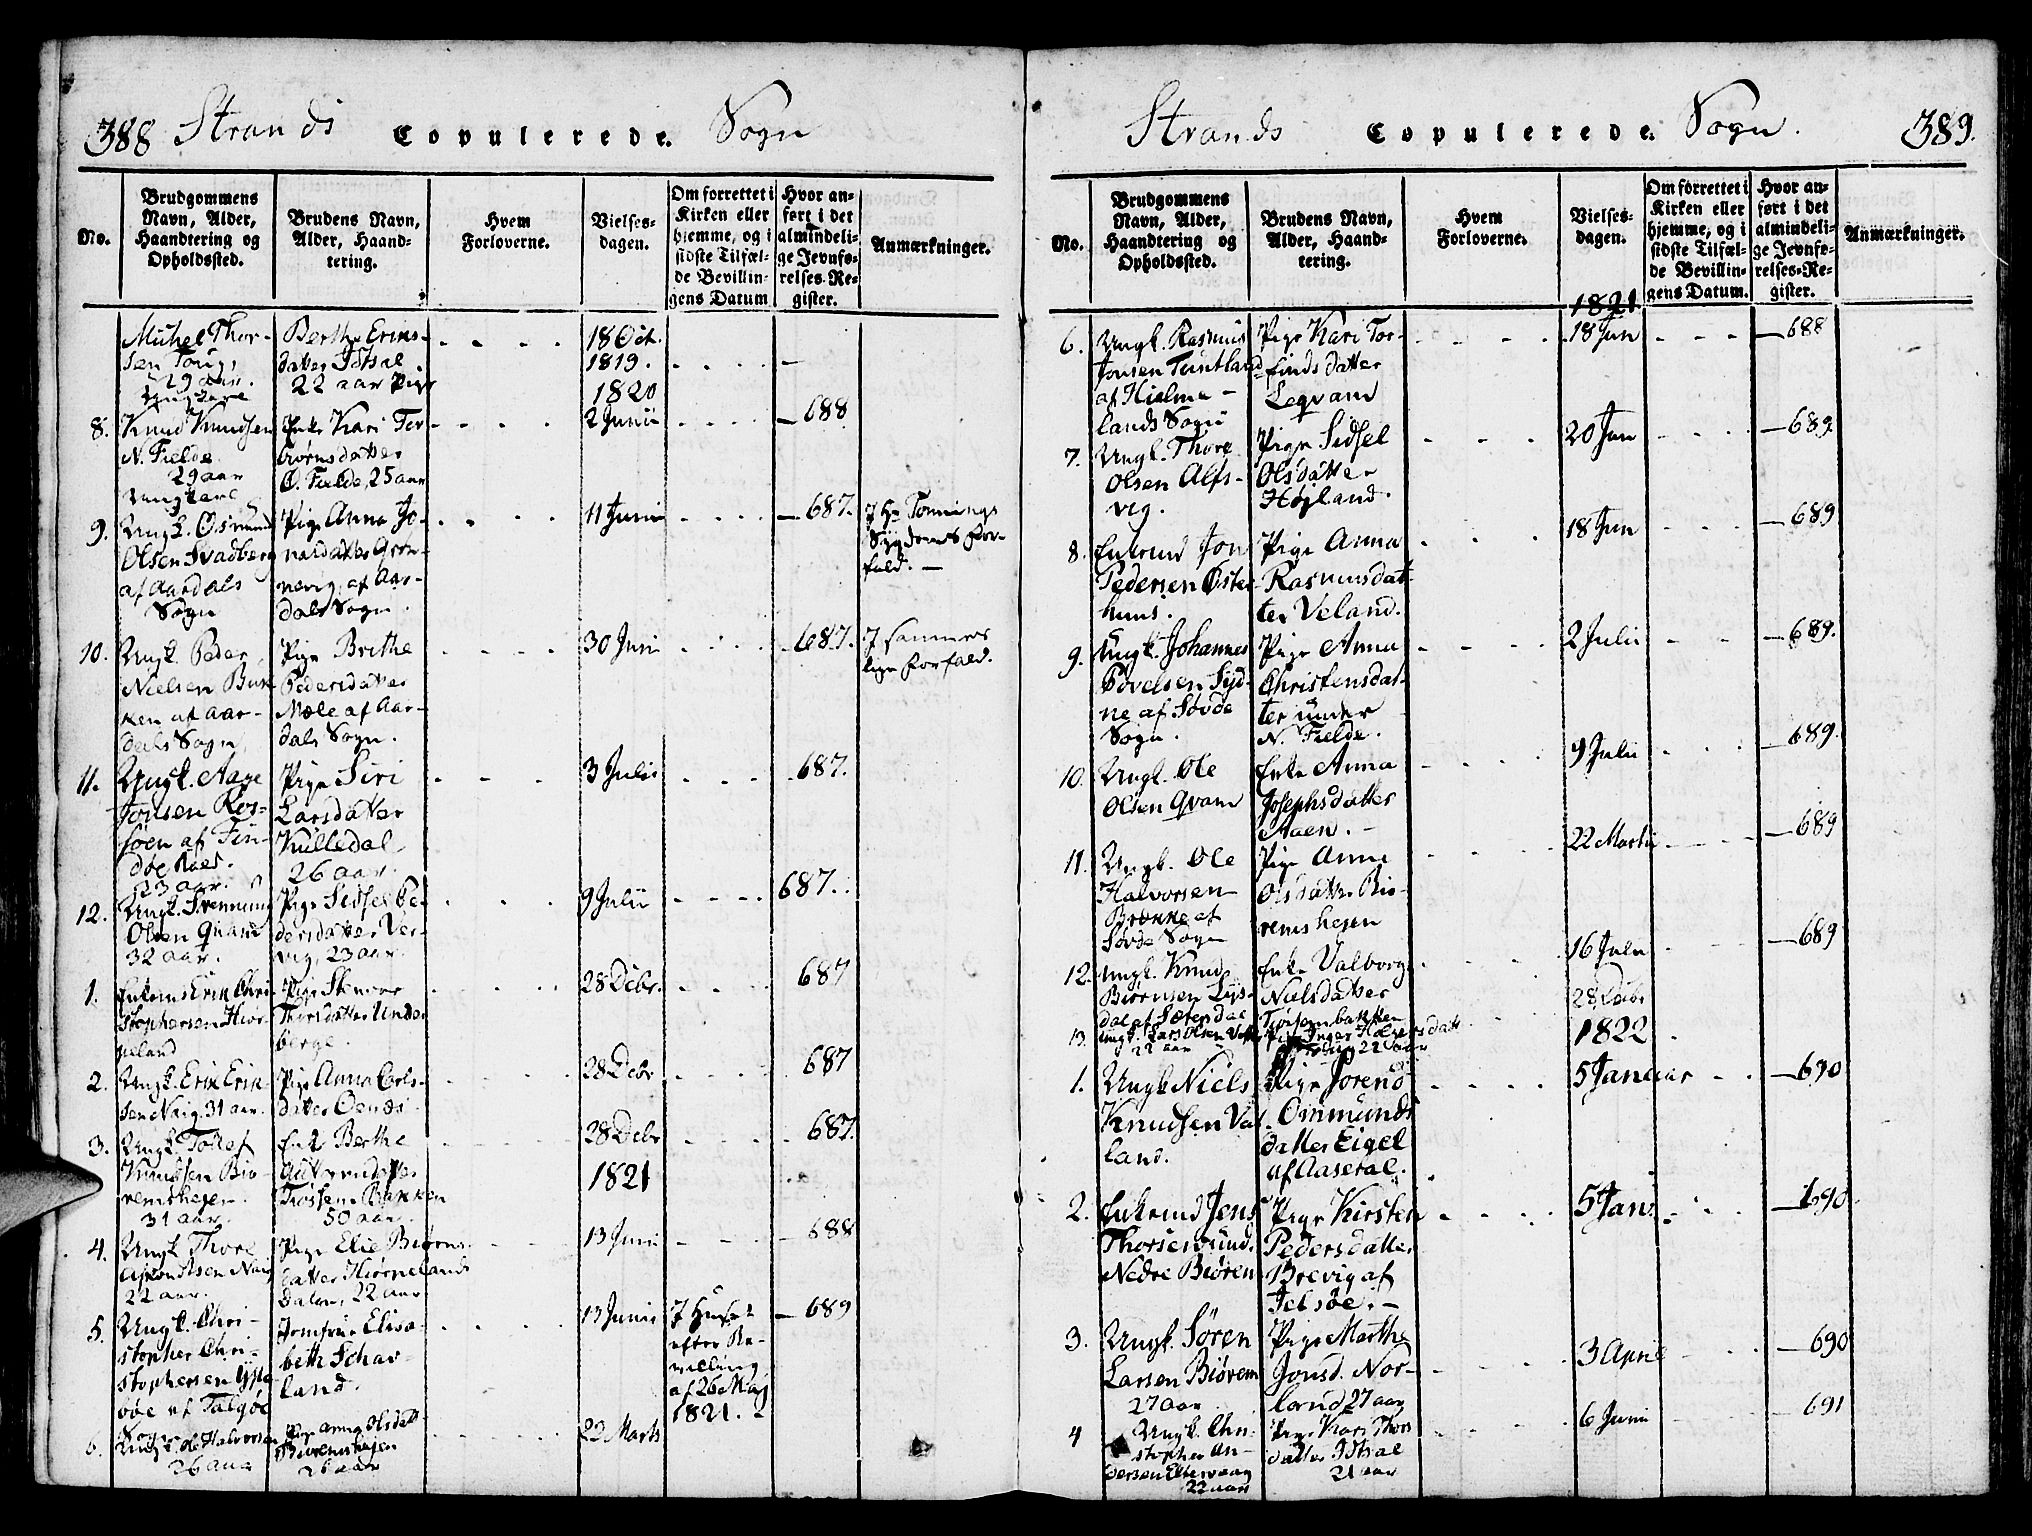 388 Strands Copulerede. Sogn
No.
Brudgommens Navn, Alder, Haandtering og Opholdssted.
Brudens Navn, Alder, Haandtering.
Hvem Forloverne.
Vielsesdagen.
Om forrettet i Kirken eller hjemme, og i sidste Tilfælde Bevillingens Datum
Hvor anført i det almindelige Jevnførelses-Register.
Anmærkninger.
Michel Thor-
sen
29 aar.
Ungkarl
Berthe Eriks-
datter Idsal
22 aar Pige
18 Oct.
1819.
1820
8.
Knud Knudsen
N. Fielde
29 aar
Ungkarl
Enke Kari Tor
biørnsdatter
Ø. Fielde, 25 aar
2 Junii
688
9.
Ungk. Osmund
Olsen Svadberg
af Aardals
Sogn
Pige Anna Jo-
nasdatter Grøn-
nevig, af Aar-
dals Sogn.
11 Junii
687.
I Hr Tonnings
Sygdoms For-
fald.
10.
Ungk. Peder
Nielsen Bak-
ken af Aar-
dals Sogn
Pige Brithe
Pedersdatter
Mæle af Aar-
dals Sogn.
30 Juni
687.
I sammes
lige Forfald.
11.
Ungk. Aage
Jonsen Ros-
søen af Fin-
døe
23 aar.
Pige Siri
Larsdatter
Kulledal
26 aar.
3 Julii
687.
12.
Ungk. Svennung
Olsen Qvame
32 aar.
Pige Sidsel Pe-
dersdatter Ver-
vig, 23 aar.
9 Julii
687.
1.
Enkem Erik Chri-
stophersen Hior-
peland
Pige
Thorsdatter Under
berge.
28 Debr.
687
2.
Ungk. Erik Erik-
sen Naig. 31 aar.
Pige Anna Carls-
datter
28 Debr
687
3.
Ungk. Tollef
Knudsen Biø-
remshejen.
31 aar.
Enke Berthe
Guttormdatter
Tiøssem Bakken
50 aar.
28 Debr
687.
1821
4.
Ungk Thore
Naig
22 aar.
Pige Elie Biørns
datter Hiørnelands
Dalen, 22 aar
13 Juni
688
5.
Ungk. Chri-
stopher Chri-
stophersen
øe af Talgøe
Sogn
Jomfrue Elisa-
beth Schar-
land.
13 Junii
I Huset
efter Be-
villing
af 26 Maj
1821.
689
6.
Ungk. Ole Halvorsen
26 aar
Pige Anna Olsdatt
Biøremshejen
26 aar
23 Marts
Strands Copulerede. Sogn. 389.
No.
Brudgommens Navn, Alder, Haandtering og Opholdssted.
Brudens Navn, Alder, Haandtering.
Hvem Forloverne.
Vielsesdagen.
Om forrettet i Kirken eller hjemme, og i sidste Tilfælde Bevillingens Datum.
Hvor anført i det almindelige Jevnførelses-Register.
Anmærkninger.
1821
6.
Ungk. Rasmus
Jonsen Tuntland
af Hielme-
lands Sogn
Pige Kari Tor-
finds datter
Leqvam
18 Jun
688
7.
Ungk. Thore
Olsen Alfs-
vig.
Pige Sidsel
Olsdatter
Højland.
20 Jun
689.
8.
Enkemd Jon
Pedersen Øster-
huus.
Pige Anna
Rasmusdat-
ter Veland.
18 Jun
689
9.
Ungk. Johannes
Povelsen Syd-
ne af Søvde
Sogn.
Pige Anna
Christensdat-
ter under
N. Fielde.
2 Julii
689.
10.
Ungk. Ole
Olsen Qvam
Enke Anna
Josephsdatter
Aaen.
9 Julii
689.
11.
Ungk. Ole
Halvorsen
Brøkke af
Søvde Sogn
Pige Anna
Olsdatter Biø-
remshejen
22 Martii
689
12.
Ungk. Knud
Biørnsen Lys-
dal af Sætersdal
Enke Valborg
Nielsdatter
Tiøsembakken
16 Julii
689
13.
Ungk. Lars Olsen
22 aar
Pige Inger Holgersdatt
22 aar
28 Debr
1822
1.
Ungk Niels
Knudsen Va-
land.
Pige Sørend
Ommunds
datter Eigel
af Aaseral.
5 Januar
690
2.
Enkemd Jens
Thorsensund
Nedre Biøren
Pige Kirsten
Pedersdatter
Brevig af
Jelsøe.
5 Jan.
690.
3.
Ungk. Sören
Larsen Biørem
27 aar
Pige Marthe
Jonsd. Nor-
land 27 aar
3 April
690
4
Ungk. Chri-
stopher An-
dersen Eltervaag
22 aar
Pige Kari Thors
datter Idsal
21 aar
6 Juni
691